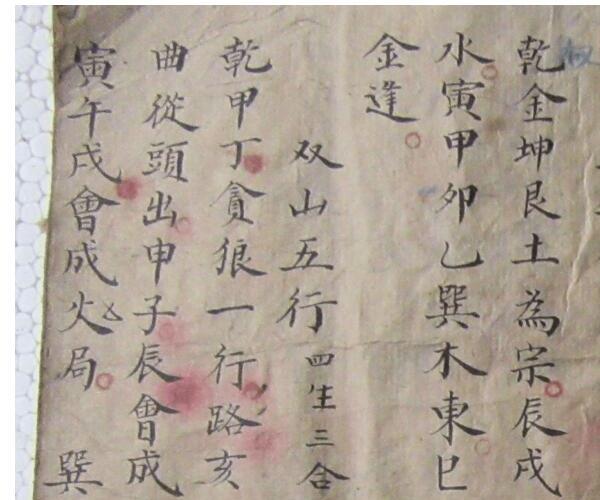 乾金坤艮土為宗辰戌
水寅甲卯乙巽木東巳
金逢
双山五行四生三合
乾甲丁貪狼一行路亥
曲從頭出申子辰會成
寅午戌會成火局 巽